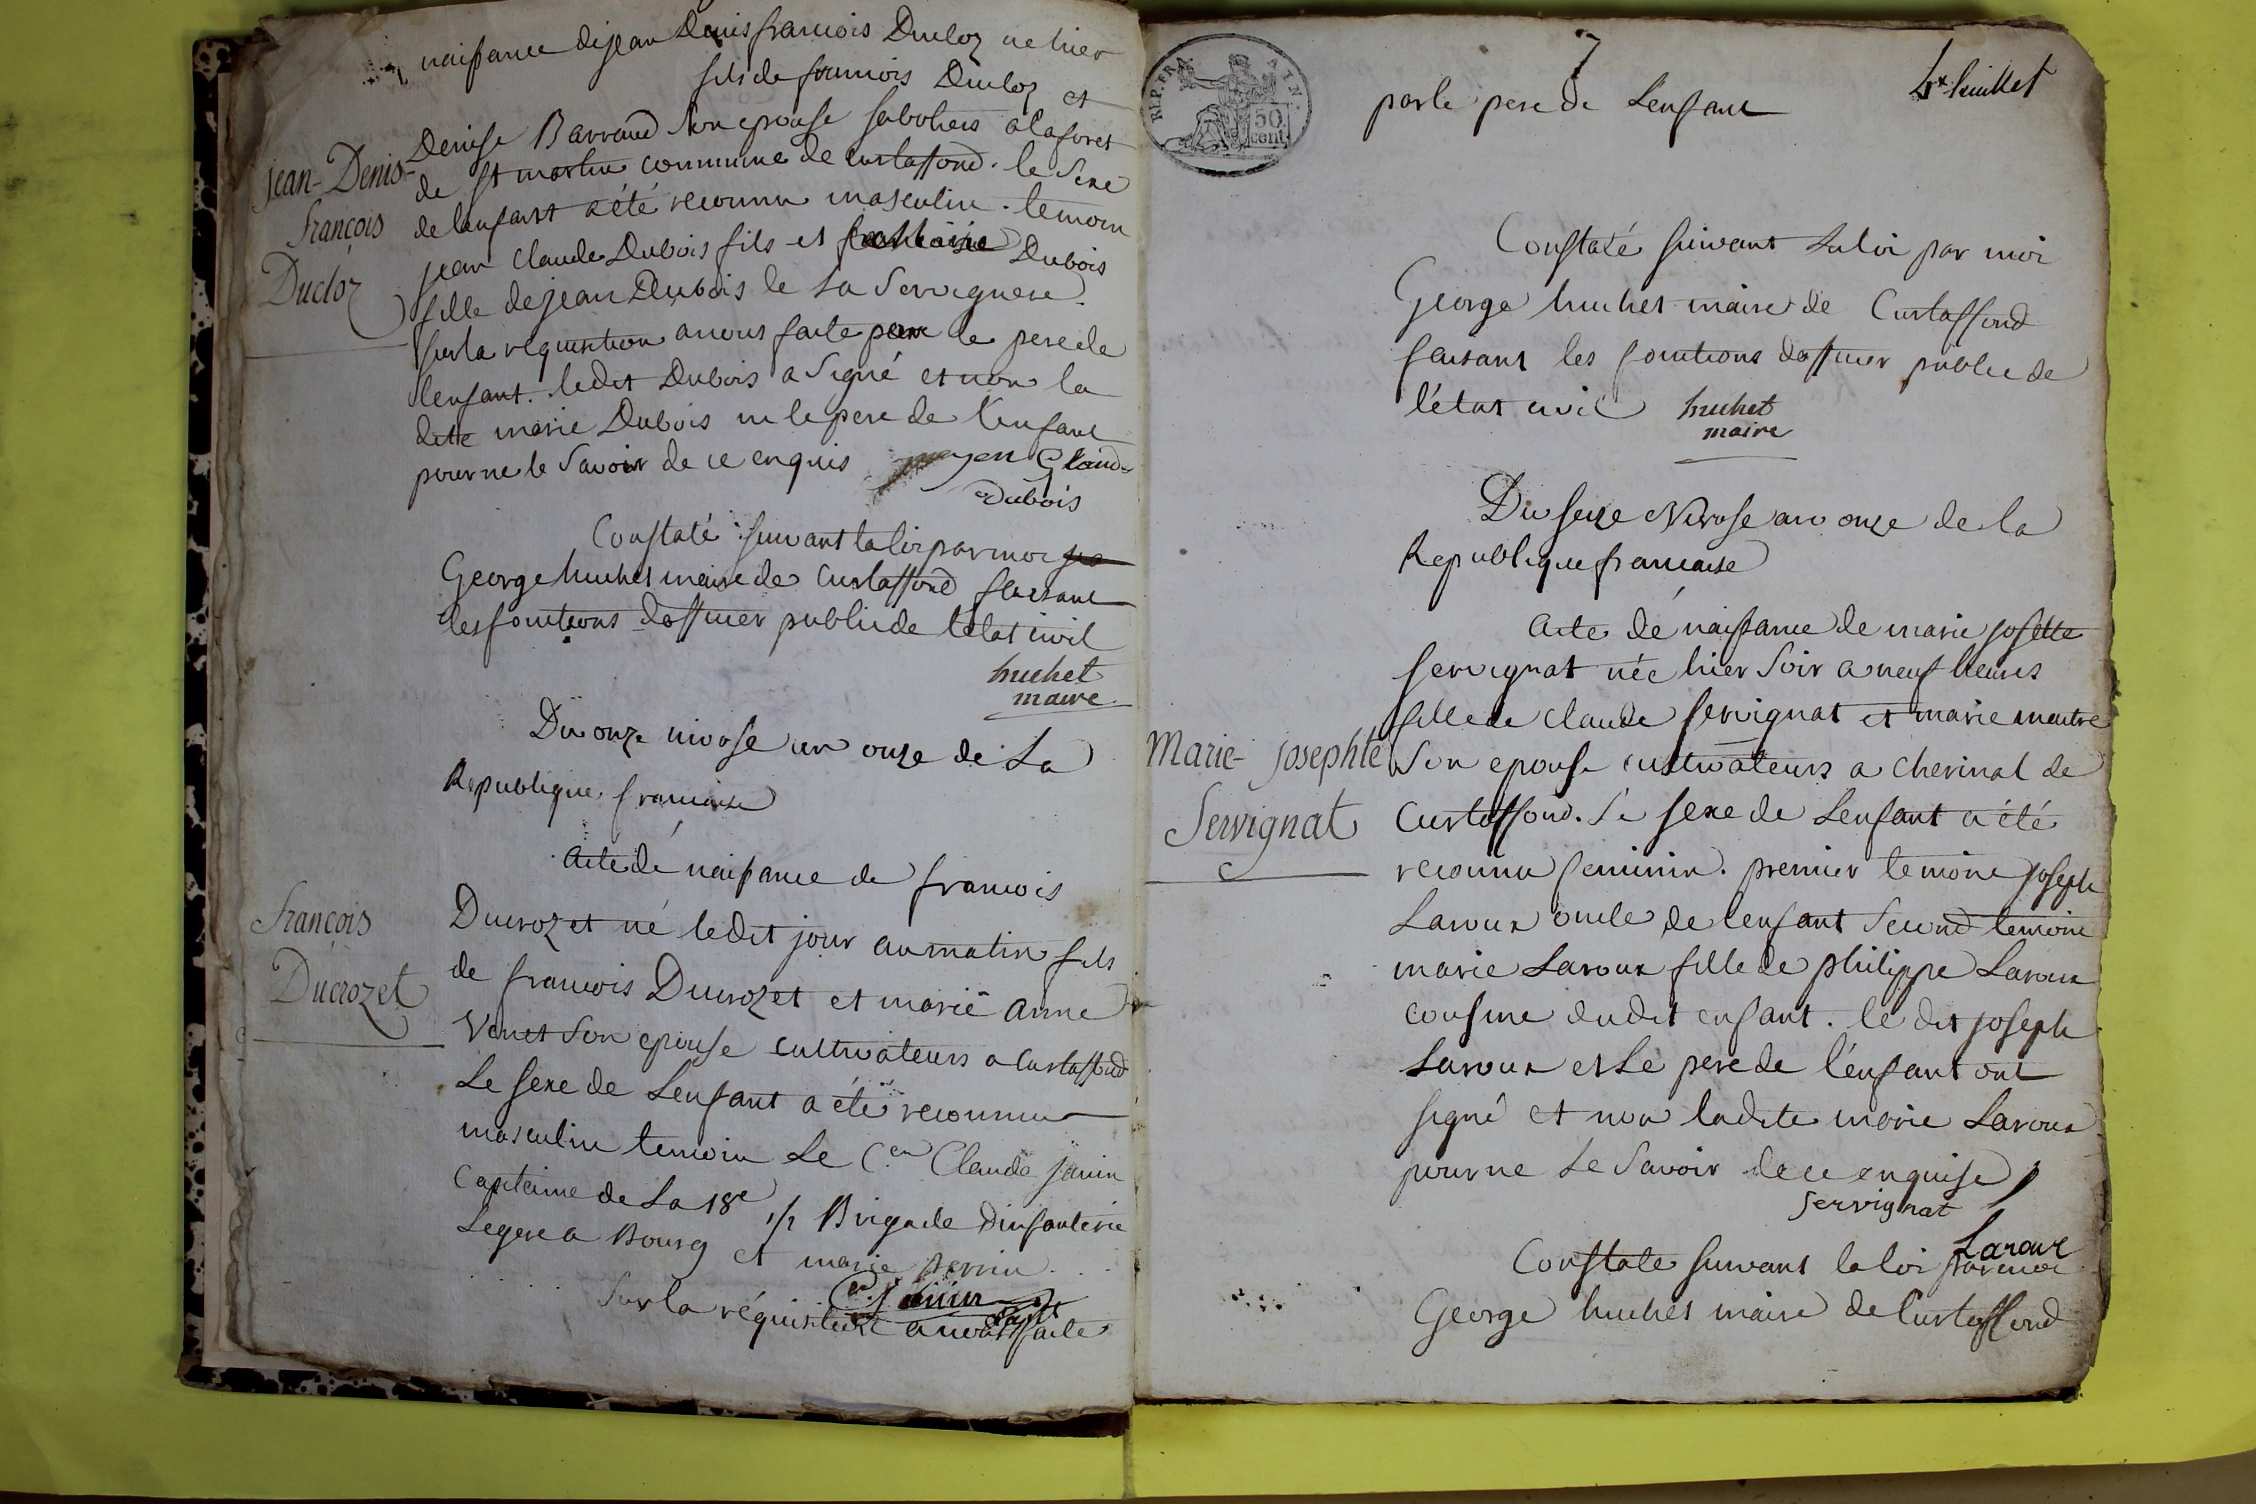 naissance de jean Denis francois Ducloz ne hier
fils de francois Ducloz et
Denise Barraud son epouse sabotiers a la foret
de st martin commune de Curtaffond. le sexe
de lenfant a été reconnu masculin. temoin
jean Claude Dubois fils et Dubois
fille de jean Dubois de la Servignere.
sur la requisition a nous faite par le pere de
lenfant. ledit Dubois a signé et non la
dite marie Dubois ni le pere de l'enfant
pour ne le savoir de ce enquis
Dubois
Jean-Denis-
françois
Ducloz
Constaté suivant la loi par moi
George huchet maire de Curtaffond faisant
les fonctions dofficier public de l'etat civil
huchet
maire
Du onze nivose an onze de La
Republique francaise
Acte de naissance de francois
Ducrozet né ledit jour au matin fils
de francois Ducrozet et marie anne
Venet son epouse cultivateurs a Curtaffond
Le sexe de Lenfant a été reconnu
masculin temoin Le C.en Claude janin
Capitaine de La 18e 1/2 Brigade dinfanterie
Legere a Bourg et marie perrin.
C.en janin
Sur la réquisition a nous faite
françois
Ducrozet
REP. FRA. AIN.
50
cent.
7
4e feuillet
par le pere de Lenfant
Constaté suivant la loi par moi
George huchet maire de Curtaffond
faisant les fonctions dofficier public de
l'état civil huchet
maire
Du seize Nivose an onze de la
Republique francaise
Acte de naissance de marie josette
servignat née hier soir a neuf heures
fille de Claude servignat et marie maitre
son epouse cultivateurs a cherinal de
Curtaffond. Le sexe de Lenfant a été
reconnu feminin. premier temoin joseph
Laroux oncle de lenfant second temoin
marie Laroux fille de philippe Laroux
cousine dudit enfant. le dit joseph
Laroux et Le pere de l'enfant ont
signé et non ladite marie Laroux
pour ne le savoir de ce enquise
servignat
Laroux
Marie-Josephte
Servignat
Constaté suivant la loi par moi
George huchet maire de Curtaffond